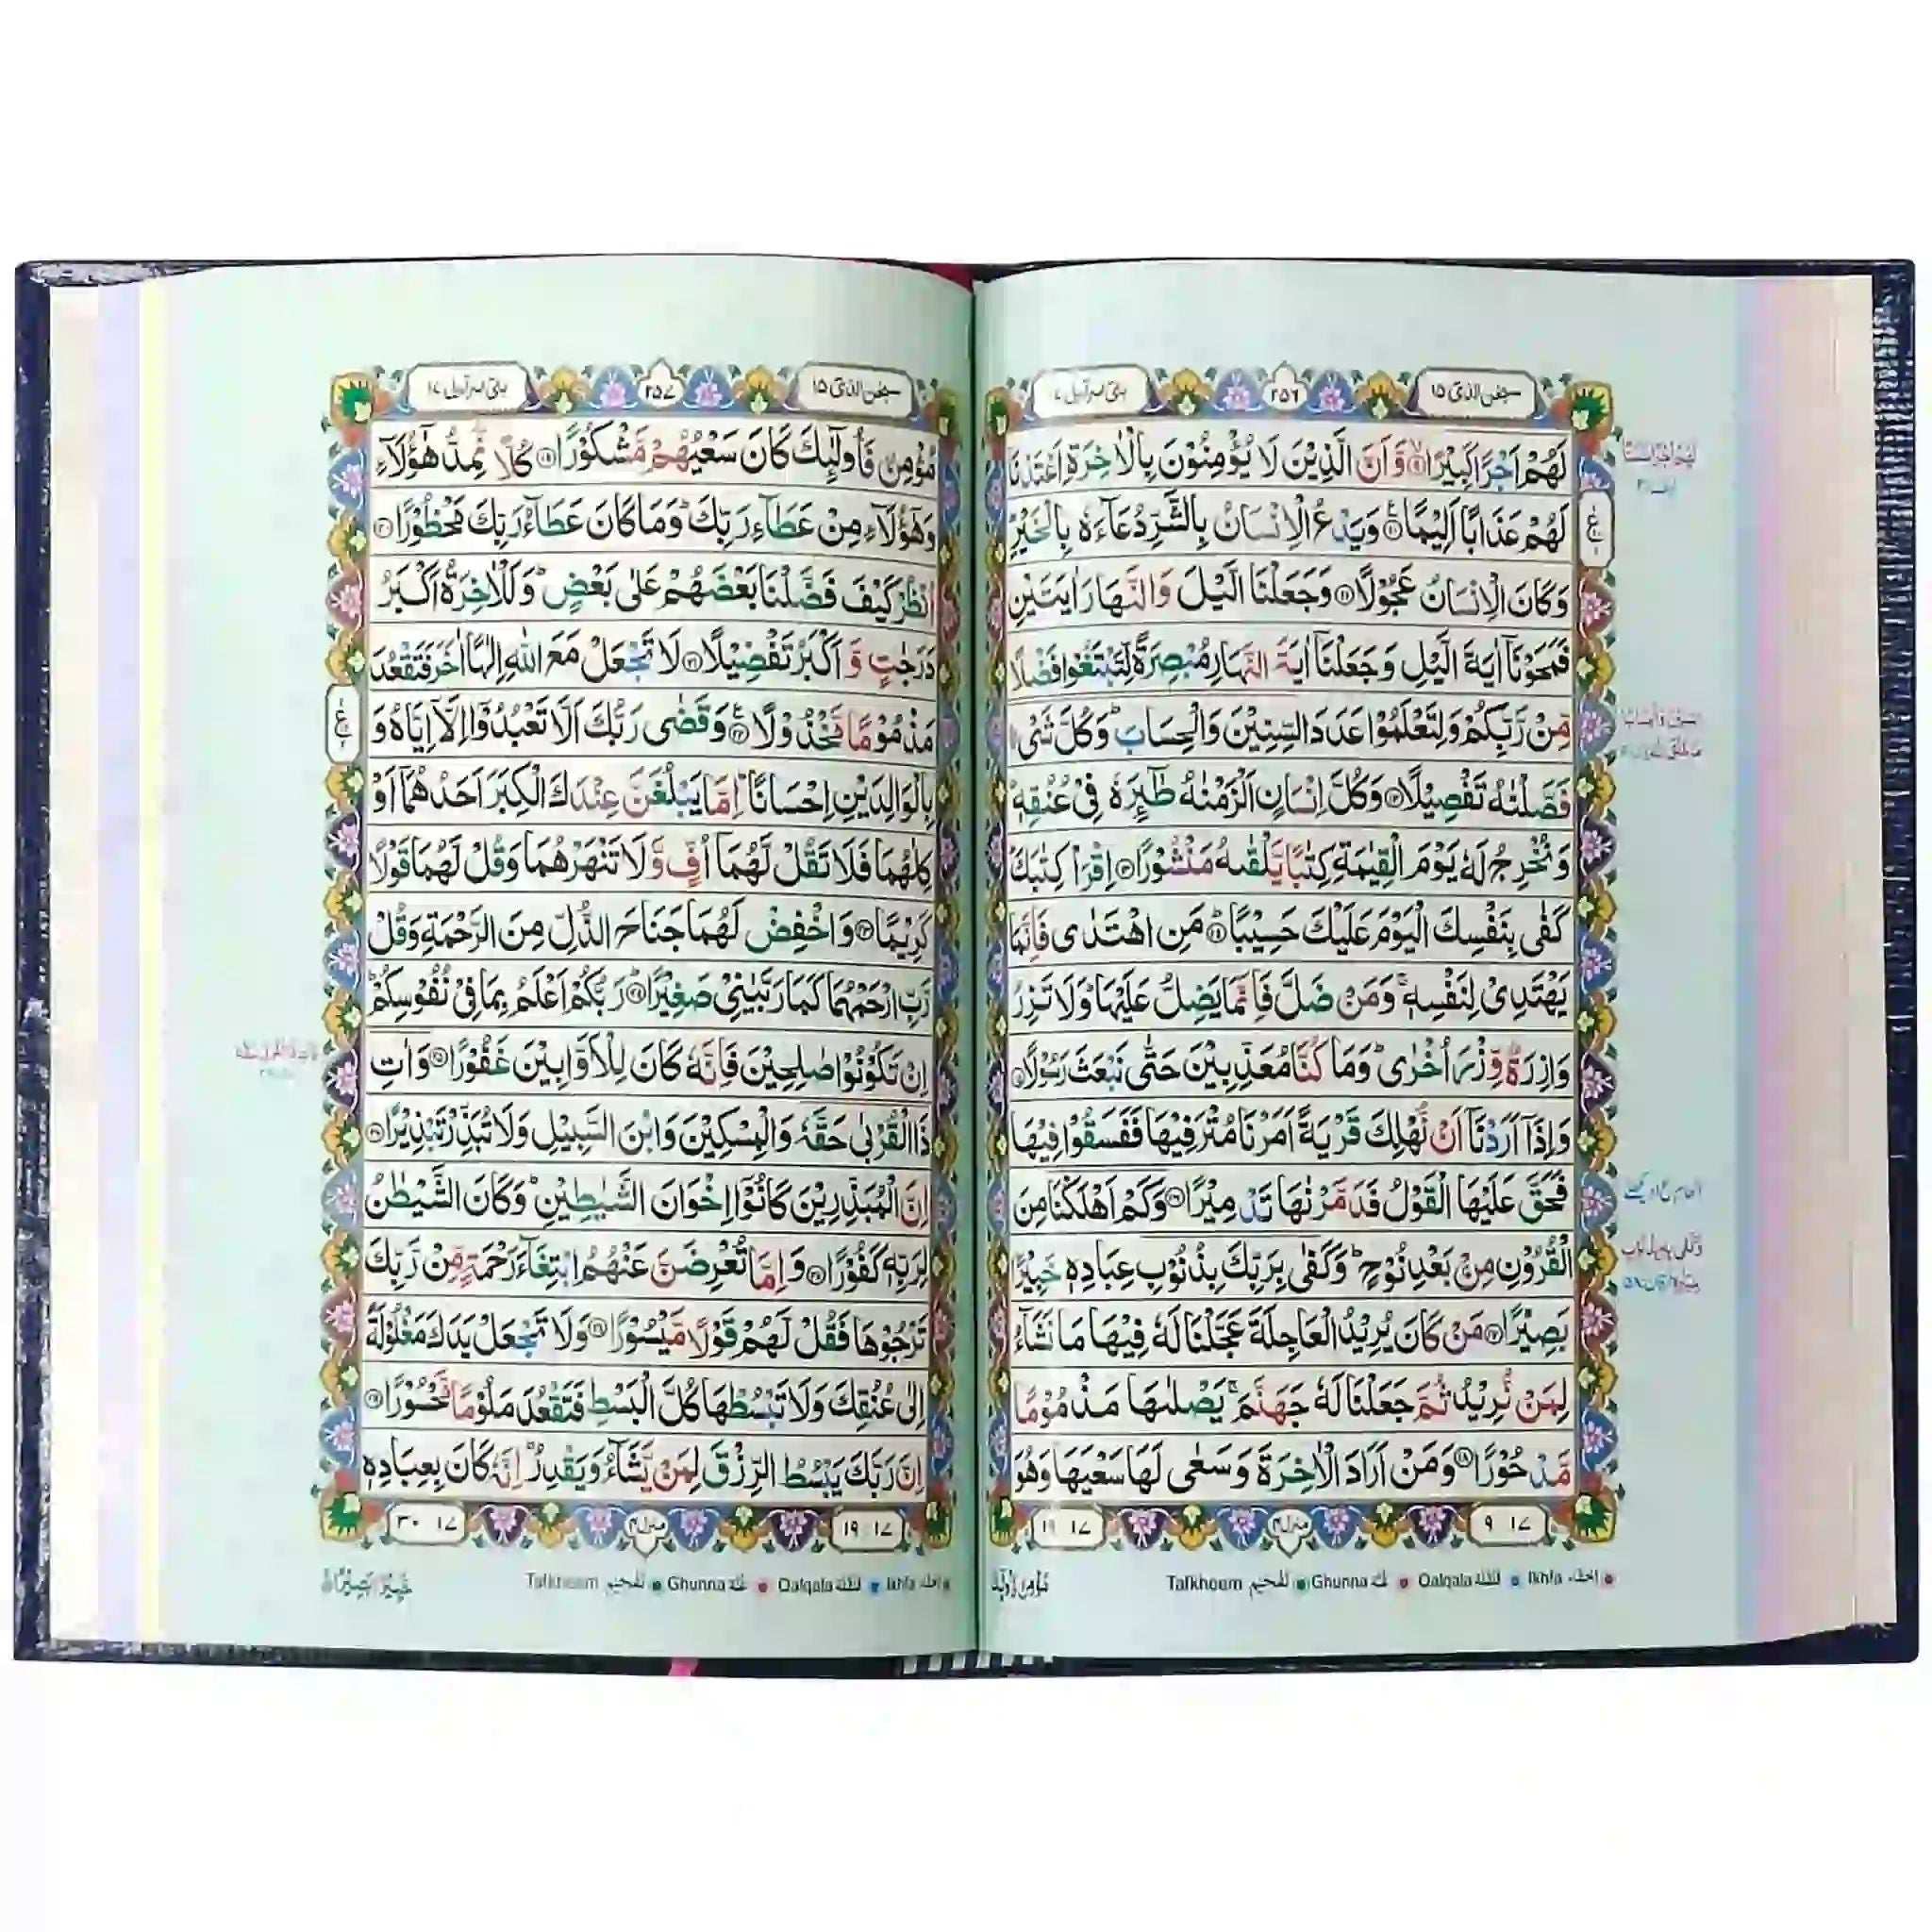 سبحٰن الذی ۱۵
۲۵۶
بنی اسرآءیل ۱۷
لَهُمْ اَجْرًا كَبِیْرًا ۹ وَّ اَنَّ الَّذِیْنَ لَا یُؤْمِنُوْنَ بِالْاٰخِرَةِ اَعْتَدْنَا
لَهُمْ عَذَابًا اَلِیْمًا ۱۰ وَ یَدْعُ الْاِنْسَانُ بِالشَّرِّ دُعَآءَهٗ بِالْخَیْرِ
وَ كَانَ الْاِنْسَانُ عَجُوْلًا ۱۱ وَ جَعَلْنَا الَّیْلَ وَ النَّهَارَ اٰیَتَیْنِ
فَمَحَوْنَاۤ اٰیَةَ الَّیْلِ وَ جَعَلْنَاۤ اٰیَةَ النَّهَارِ مُبْصِرَةً لِّتَبْتَغُوْا فَضْلًا
مِّنْ رَّبِّكُمْ وَ لِتَعْلَمُوْا عَدَدَ السِّنِیْنَ وَ الْحِسَابَ ؕ وَ كُلَّ شَیْءٍ
فَصَّلْنٰهُ تَفْصِیْلًا ۱۲ وَ كُلَّ اِنْسَانٍ اَلْزَمْنٰهُ طٰٓئِرَهٗ فِیْ عُنُقِهٖ
وَ نُخْرِجُ لَهٗ یَوْمَ الْقِیٰمَةِ كِتٰبًا یَّلْقٰىهُ مَنْشُوْرًا ۱۳ اِقْرَاْ كِتٰبَكَ
كَفٰى بِنَفْسِكَ الْیَوْمَ عَلَیْكَ حَسِیْبًا ۱۴ مَنِ اهْتَدٰى فَاِنَّمَا
یَهْتَدِیْ لِنَفْسِهٖ ۚ وَ مَنْ ضَلَّ فَاِنَّمَا یَضِلُّ عَلَیْهَا ؕ وَ لَا تَزِرُ
وَازِرَةٌ وِّزْرَ اُخْرٰى ؕ وَ مَا كُنَّا مُعَذِّبِیْنَ حَتّٰى نَبْعَثَ رَسُوْلًا ۱۵
وَ اِذَاۤ اَرَدْنَاۤ اَنْ نُّهْلِكَ قَرْیَةً اَمَرْنَا مُتْرَفِیْهَا فَفَسَقُوْا فِیْهَا
فَحَقَّ عَلَیْهَا الْقَوْلُ فَدَمَّرْنٰهَا تَدْمِیْرًا ۱۶ وَ كَمْ اَهْلَكْنَا مِنَ
الْقُرُوْنِ مِنْۢ بَعْدِ نُوْحٍ ؕ وَ كَفٰى بِرَبِّكَ بِذُنُوْبِ عِبَادِهٖ خَبِیْرًۢا
بَصِیْرًا ۱۷ مَنْ كَانَ یُرِیْدُ الْعَاجِلَةَ عَجَّلْنَا لَهٗ فِیْهَا مَا نَشَآءُ
لِمَنْ نُّرِیْدُ ثُمَّ جَعَلْنَا لَهٗ جَهَنَّمَ ۚ یَصْلٰىهَا مَذْمُوْمًا
مَّدْحُوْرًا ۱۸ وَ مَنْ اَرَادَ الْاٰخِرَةَ وَ سَعٰى لَهَا سَعْیَهَا وَ هُوَ
۱۷ ۹
منزل ۴
۱۷ ۱۹
Ikhfa اخفاء Qalqala قلقلة Ghunna غنة Tafkheem تفخيم
مُؤْمِنٌ فَاُولٰٓئِكَ
سبحٰن الذی ۱۵
۲۵۷
بنی اسرآءیل ۱۷
مُؤْمِنٌ فَاُولٰٓئِكَ كَانَ سَعْیُهُمْ مَّشْكُوْرًا ۱۹ كُلًّا نُّمِدُّ هٰۤؤُلَآءِ
وَ هٰۤؤُلَآءِ مِنْ عَطَآءِ رَبِّكَ ؕ وَ مَا كَانَ عَطَآءُ رَبِّكَ مَحْظُوْرًا ۲۰
اُنْظُرْ كَیْفَ فَضَّلْنَا بَعْضَهُمْ عَلٰى بَعْضٍ ؕ وَ لَلْاٰخِرَةُ اَكْبَرُ
دَرَجٰتٍ وَّ اَكْبَرُ تَفْضِیْلًا ۲۱ لَا تَجْعَلْ مَعَ اللّٰهِ اِلٰهًا اٰخَرَ فَتَقْعُدَ
مَذْمُوْمًا مَّخْذُوْلًا ۲۲ وَ قَضٰى رَبُّكَ اَلَّا تَعْبُدُوْۤا اِلَّاۤ اِیَّاهُ وَ
بِالْوَالِدَیْنِ اِحْسَانًا ؕ اِمَّا یَبْلُغَنَّ عِنْدَكَ الْكِبَرَ اَحَدُهُمَاۤ اَوْ
كِلٰهُمَا فَلَا تَقُلْ لَّهُمَاۤ اُفٍّ وَّ لَا تَنْهَرْهُمَا وَ قُلْ لَّهُمَا قَوْلًا
كَرِیْمًا ۲۳ وَ اخْفِضْ لَهُمَا جَنَاحَ الذُّلِّ مِنَ الرَّحْمَةِ وَ قُلْ
رَّبِّ ارْحَمْهُمَا كَمَا رَبَّیٰنِیْ صَغِیْرًا ۲۴ رَبُّكُمْ اَعْلَمُ بِمَا فِیْ نُفُوْسِكُمْ ؕ
اِنْ تَكُوْنُوْا صٰلِحِیْنَ فَاِنَّهٗ كَانَ لِلْاَوَّابِیْنَ غَفُوْرًا ۲۵ وَ اٰتِ
ذَا الْقُرْبٰى حَقَّهٗ وَ الْمِسْكِیْنَ وَ ابْنَ السَّبِیْلِ وَ لَا تُبَذِّرْ تَبْذِیْرًا ۲۶
اِنَّ الْمُبَذِّرِیْنَ كَانُوْۤا اِخْوَانَ الشَّیٰطِیْنِ ؕ وَ كَانَ الشَّیْطٰنُ
لِرَبِّهٖ كَفُوْرًا ۲۷ وَ اِمَّا تُعْرِضَنَّ عَنْهُمُ ابْتِغَآءَ رَحْمَةٍ مِّنْ رَّبِّكَ
تَرْجُوْهَا فَقُلْ لَّهُمْ قَوْلًا مَّیْسُوْرًا ۲۸ وَ لَا تَجْعَلْ یَدَكَ مَغْلُوْلَةً
اِلٰى عُنُقِكَ وَ لَا تَبْسُطْهَا كُلَّ الْبَسْطِ فَتَقْعُدَ مَلُوْمًا مَّحْسُوْرًا ۲۹
اِنَّ رَبَّكَ یَبْسُطُ الرِّزْقَ لِمَنْ یَّشَآءُ وَ یَقْدِرُ ؕ اِنَّهٗ كَانَ بِعِبَادِهٖ
۱۷ ۱۹
منزل ۴
۱۷ ۳۰
Ikhfa اخفاء Qalqala قلقلة Ghunna غنة Tafkheem تفخيم
خَبِیْرًۢا بَصِیْرًا